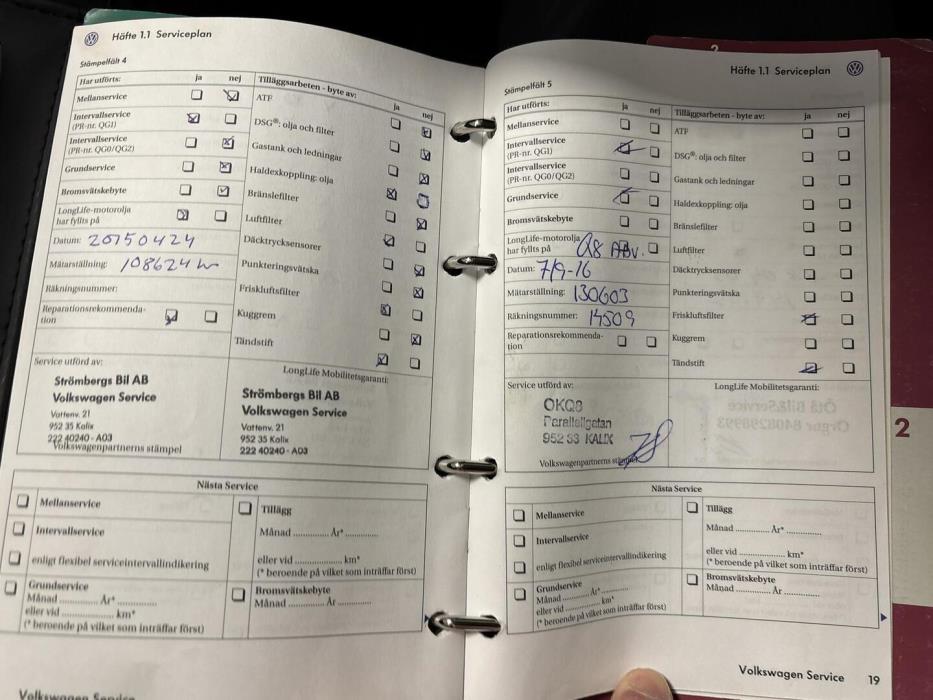 Häfte 1.1 Serviceplan
Stämpelfält 4
Har utförts: ja nej
Mellanservice
Intervallservice
(PR-nr. QG1)
Intervallservice
(PR-nr. QG0/QG2)
Grundservice
Bromsvätskebyte
LongLife-motorolja
har fyllts på
Datum: 20150424
Mätarställning: 108624
Räkningsnummer:
Reparationsrekommenda-
tion
Tilläggsarbeten - byte av: ja nej
ATF
DSG®: olja och filter
Gastank och ledningar
Haldexkoppling: olja
Bränslefilter
Luftfilter
Däcktrycksensorer
Punkteringsvätska
Friskluftsfilter
Kuggrem
Tändstift
Service utförd av:
Strömbergs Bil AB
Volkswagen Service
Vattenv. 21
952 35 Kalix
222 40240 - A03
Volkswagenpartnerns stämpel
LongLife Mobilitetsgaranti:
Strömbergs Bil AB
Volkswagen Service
Vattenv. 21
952 35 Kalix
222 40240 - A03
Nästa Service
Mellanservice
Intervallservice
enligt flexibel serviceintervallindikering
Grundservice
Månad ............ År* ............
eller vid .................. km*
(* beroende på vilket som inträffar först)
Tillägg
Månad ............ År* ............
eller vid .................. km*
(* beroende på vilket som inträffar först)
Bromsvätskebyte
Månad ............ År ............
Volkswagen Service
2
Häfte 1.1 Serviceplan
Stämpelfält 5
Har utförts: ja nej
Mellanservice
Intervallservice
(PR-nr. QG1)
Intervallservice
(PR-nr. QG0/QG2)
Grundservice
Bromsvätskebyte
LongLife-motorolja
har fyllts på
Datum: 7/9-16
Mätarställning: 130603
Räkningsnummer: 14509
Reparationsrekommenda-
tion
Tilläggsarbeten - byte av: ja nej
ATF
DSG®: olja och filter
Gastank och ledningar
Haldexkoppling: olja
Bränslefilter
Luftfilter
Däcktrycksensorer
Punkteringsvätska
Friskluftsfilter
Kuggrem
Tändstift
Service utförd av:
OKQ8
Parallellgatan
952 33 KALIX
Volkswagenpartnerns
LongLife Mobilitetsgaranti:
Nästa Service
Mellanservice
Intervallservice
enligt flexibel serviceintervallindikering
Grundservice
Månad ............ År* ............
eller vid .................. km*
(* beroende på vilket som inträffar först)
Tillägg
Månad ............ År* ............
eller vid .................. km*
(* beroende på vilket som inträffar först)
Bromsvätskebyte
Månad ............ År ............
Volkswagen Service 19
2